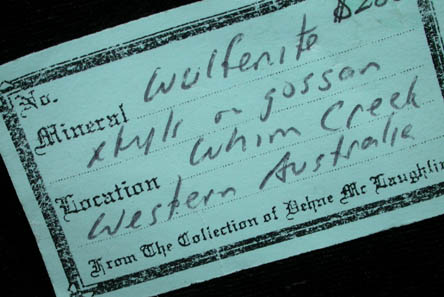 No.
Mineral Wulfenite
xtyls on gossan
Location Whim Creek
Western Australia
From The Collection of Behne Mc Laughlin